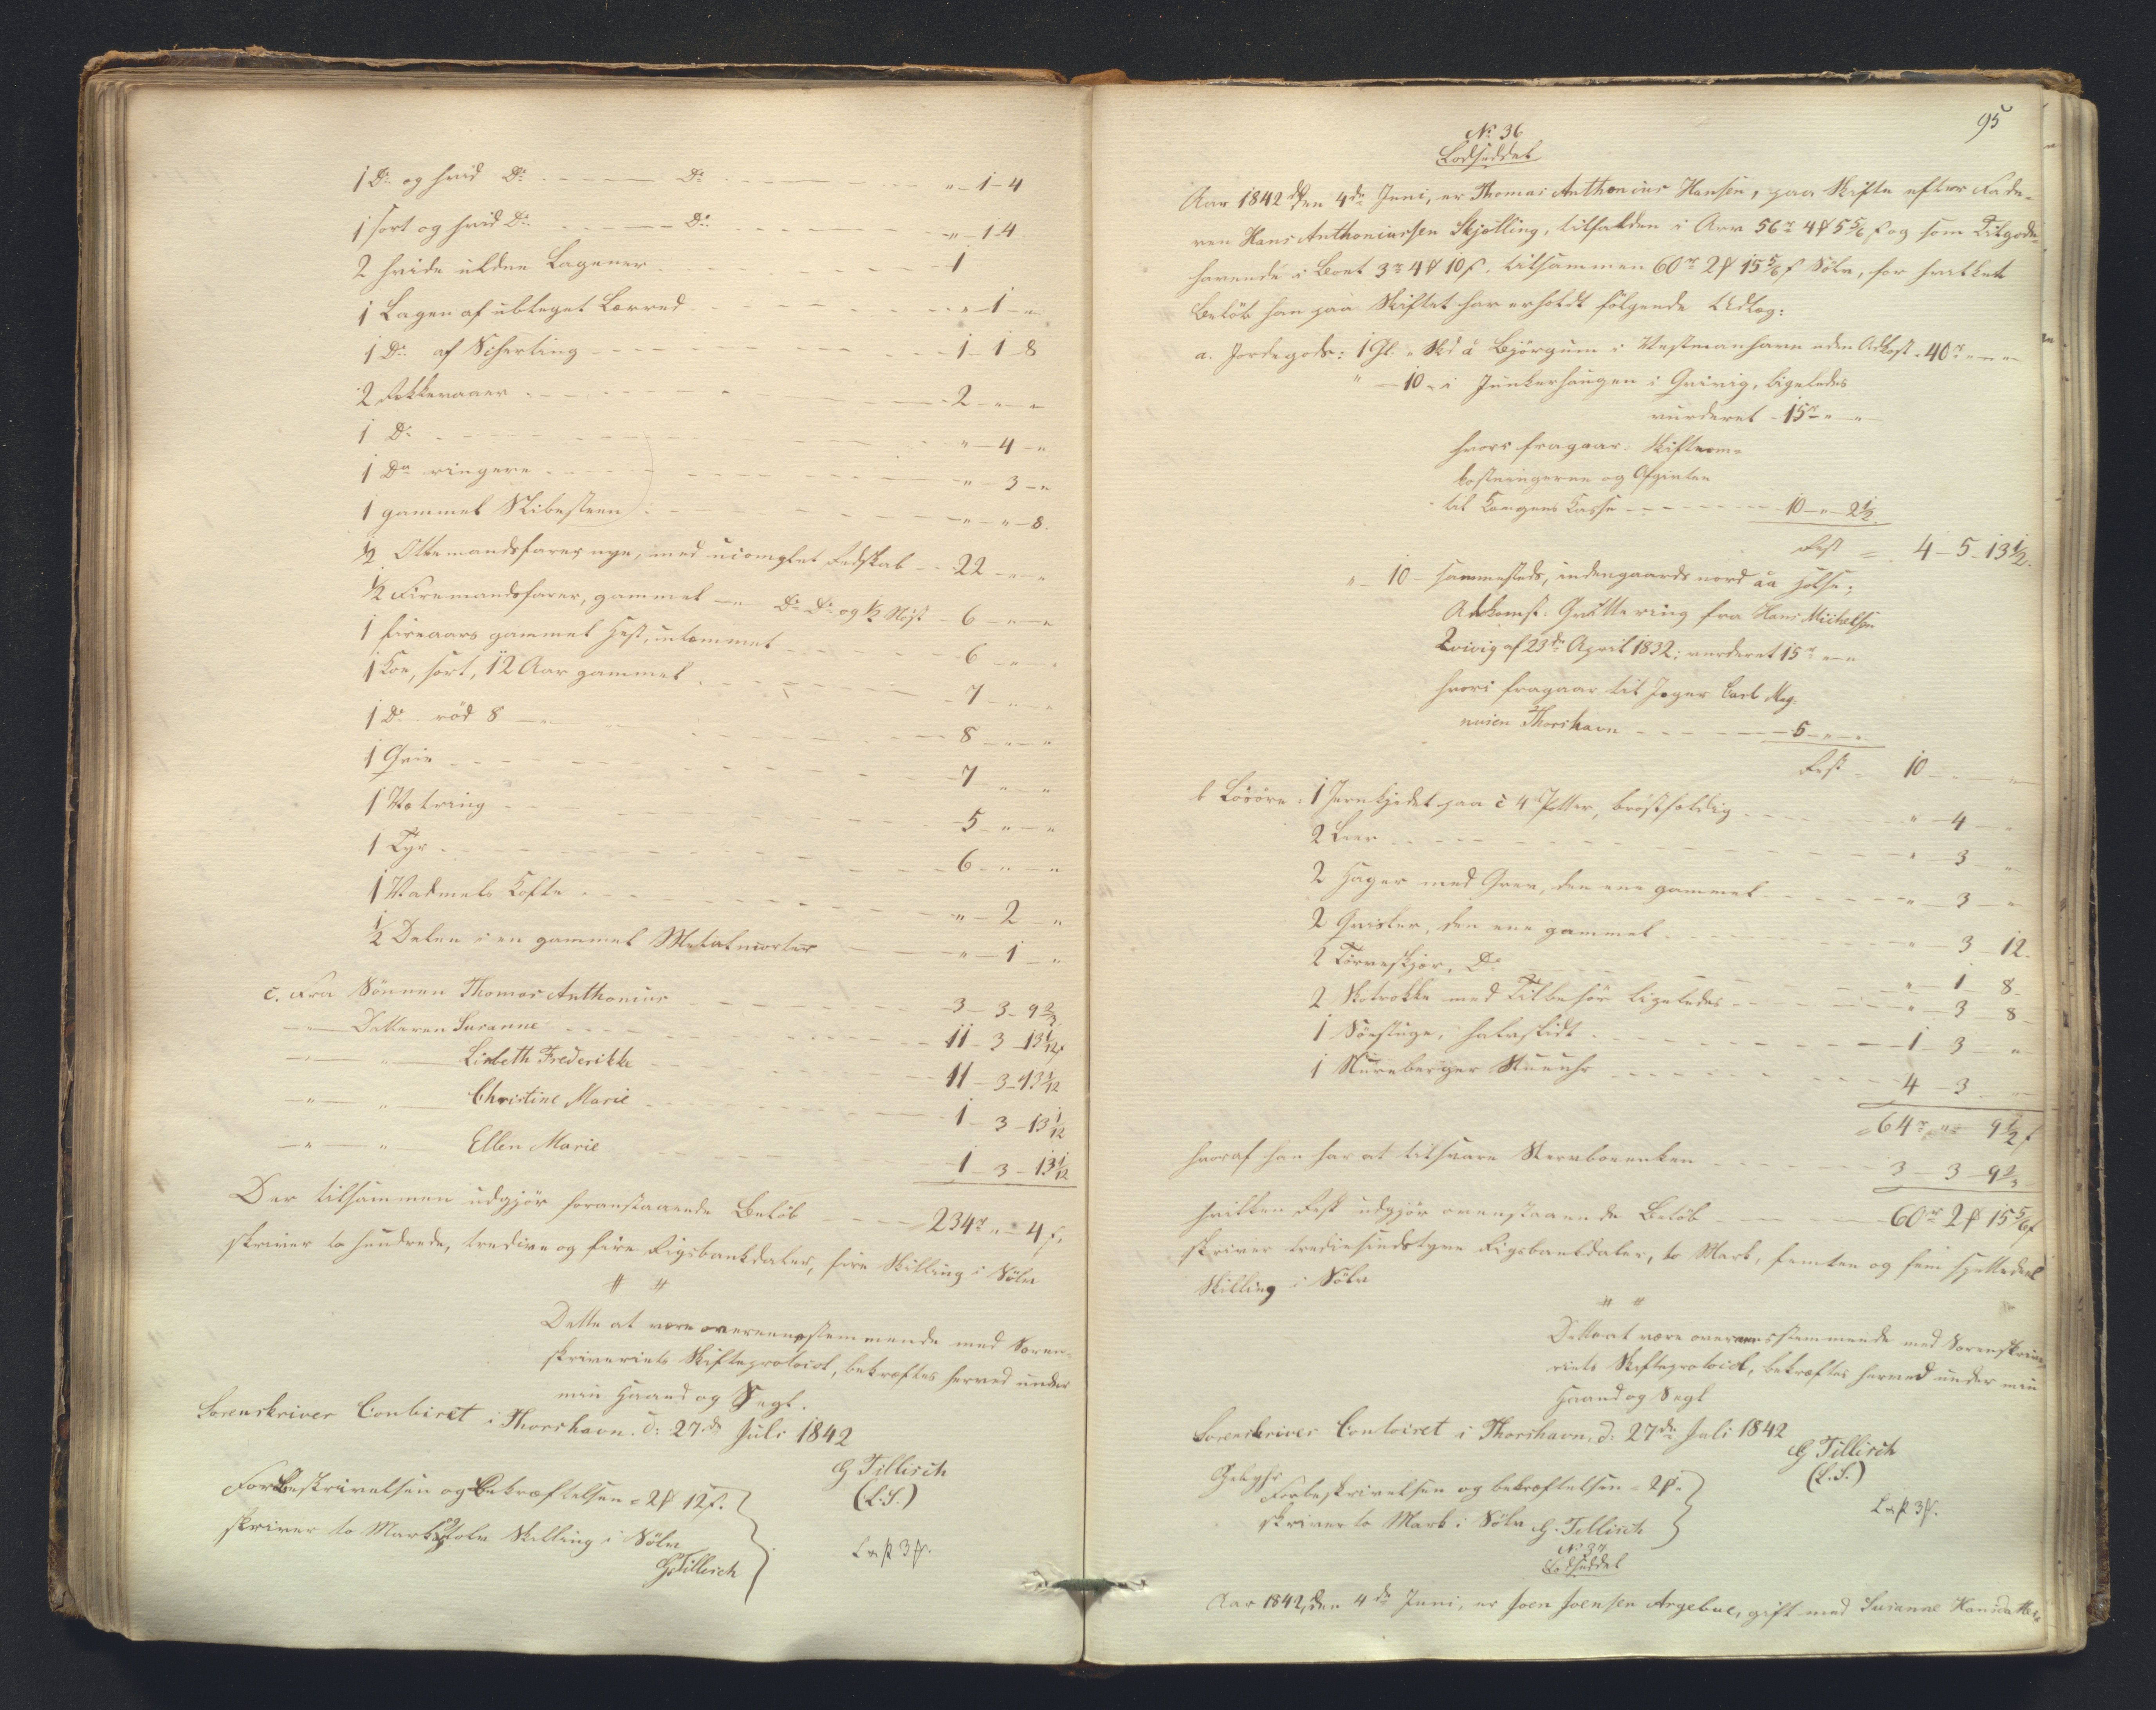 1 Do og hvid Do - - - Do - - - " - 1 - 4
1 sort og hvid Do - - - Do - - - " - 1 - 4
2 hvide uldne Lagener - - - 1
1 Lagen af ubleget Lærred - - - " - 1 - "
1 Do af Scherting - - - 1 - 1 - 8
2 - - - 2 - " - "
1 Do - - - " - 4 - "
1 Do ringere - - - " - 3 - "
1 gammel Slibesteen - - - " - " - 8.
1/2 Ottemandsfarer nye, med ucomplet Redskab - - 22 - " - "
1/2 Firemandsfarer, gammel - " Do Do og 1/2 Nøst - 6 - " - "
1 fireaars gammel Hest, utæmmet - - - 6 - " - "
1 Koe, sort, 12 Aar gammel - - - 7 - " - "
1 Do rød 8 - " - - - 8 - " - "
1 Qvie - - - 7 - " - "
1 Vetring - - - 5 - " - "
1 Tyr - - - 6 - " - "
1 Vadmels Kofte - - - " - 2 - "
1/2 Delen i en gammel Metalmorter - - " - 1 - "
c. Fra Sønnen Thomas Anthonius - - - 3 - 3 - 9 2/3
- " - Datteren Susanne - - - 11 - 3 - 13 1/12
- " - " - Lisbeth Frederikke - - - 11 - 3 - 13 1/12
- " - " - Christine Marie - - - 1 - 3 - 13 1/12
- " - " - Ellen Marie - - - 1 - 3 - 13 1/12
Der tilsammen udgjør foranstaaende Beløb - - - 234 rd " - 4 s,
skriver to hundrede, tredive og fire Rigsbankdaler, fire Skilling i Sølv
Dette at være overeensstemmende med Soren-
skriveriets Skifteprotocol, bekræftes herved under
min Haand og Segl.
Sorenskriver Contoiret i Thorshavn. d: 27de Juli 1842
G Tillisch
(L.S.)
For Beskrivelsen og Bekræftelsen = 2 # 12 s.
skriver to Mark og tolv Skilling i Sølv
G Tillisch
95
No 36
Lodseddel
Aar 1842 den 4de Juni, er Thomas Anthonius Hansen, paa Skifte efter Fade-
ren Hans Anthoniussen Skjelling, tilfalden i Arv 56 rd 4 # 5 5/6 s og som Tilgode-
havende i Boet 3 rd 4 # 10 s. tilsammen 60 rd 2 # 15 5/6 s Sølv, for hvilket
Beløb han paa Skiftet har erholdt følgende Udlæg:
a. Jordegods: 1 Gl. " Sk i å Bjørgum i Vestmanhavn uden Adkomst - 40 rd " - "
" - 10 " i Junkerhaugen i Qvivig, ligeledes
vurderet - 15 rd " - "
hvori fragaar Skifteom-
kostningerne og Afgivten
til Kongens Kasse - - - 10 - " - 2 1/2.
Rest = 4 - 5 - 13 1/2.
" - 10 - sammesteds, indengaards nord åa
Adkomst: Qvittering fra Hans Michelsen
Qvivig af 23de April 1832; vurderet 15 rd " - "
hvori fragaar til Jæger Carl Mag-
nusen Thorshavn - - - 5 - " - "
Rest - 10 - " - "
b Løsøre: 1 Jernkjedel paa c 4 Potter, brøstfældig - - - " - 4 - "
2 Leer - - - " - 3 - "
2 Hager med Green, den ene gammel - - - " - 3 - "
2 Qvister, den ene gammel - - - " - 3 - 12.
2 Tørveskjær, Do - - - " - 1 - 8 -
2 Skotrokke med Tilbehør ligeledes - - - " - 3 - 8 -
1 Søestuge, halvslidt - - - 1 - 3 - "
1 Nürnberger Stueuhr - - - 4 - 3 - "
= 64 rd " - 9 1/2 s
hvoraf han har at tilsvare Stervboeenken - - - 3 - 3 - 9 2/3
hvilken Rest udgjør ovenstaaende Beløb - - - 60 rd 2 # 15 5/6 s
skriver tredsindstyve Rigsbankdaler, to Mark, femten og fem Syettedeel
Skilling i Sølv
Dette at være overeensstemmende med Sorenskrive-
riets Skifteprotocol, bekræftes herved under min
Haand og Segl
Sorenskriver Contoiret i Thorshavn, d: 27de Juli 1842
G Tillisch
(L.S.)
Gebyhr
For beskrivelsen og bekræftelsen = 2 # "
skriver to Mark i Sølv G. Tillisch
No 37
Lodseddel
Aar 1842, den 4de Juni, er Joen Joensen Argeboe, gift med Susanne Hansdatter